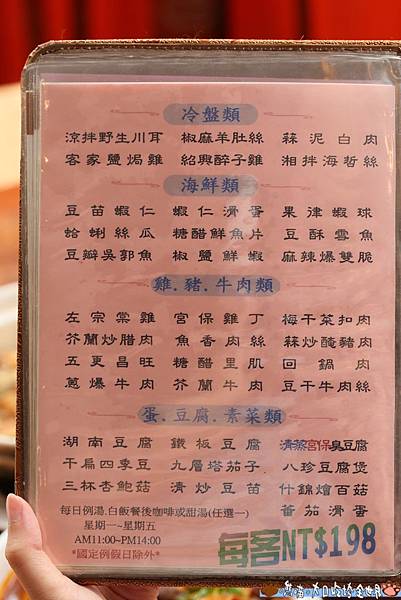 冷盤類
涼拌野生川耳 椒麻羊肚絲 蒜泥白肉
客家鹽焗雞 紹興醉子雞 湘拌海哲絲
海鮮類
豆苗蝦仁 蝦仁滑蛋 果律蝦球
蛤蜊絲瓜 糖醋鮮魚片 豆酥雪魚
豆瓣吳郭魚 椒鹽鮮蝦 麻辣爆雙脆
雞.豬.牛肉類
左宗棠雞 宮保雞丁 梅干菜扣肉
芥蘭炒腊肉 魚香肉絲 蒜炒醃豬肉
五更昌旺 糖醋里肌 回鍋肉
蔥爆牛肉 芥蘭牛肉 豆干牛肉絲
蛋.豆腐.素菜類
湖南豆腐 鐵板豆腐 清蒸宮保臭豆腐
干扁四季豆 九層塔茄子 八珍豆腐煲
三杯杏鮑菇 清炒豆苗 什錦燴百菇
蕃茄滑蛋
每日例湯.白飯餐後咖啡或甜湯(任選一)
星期一~星期五
AM11:00~PM14:00
*國定例假日除外*
每客NT$198